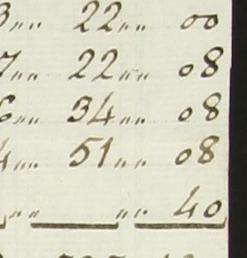 3 „ 22 „ 00
7 „ 22 „ 08
6 „ 34 „ 08
4 „ 51 „ 08
„ „ 40